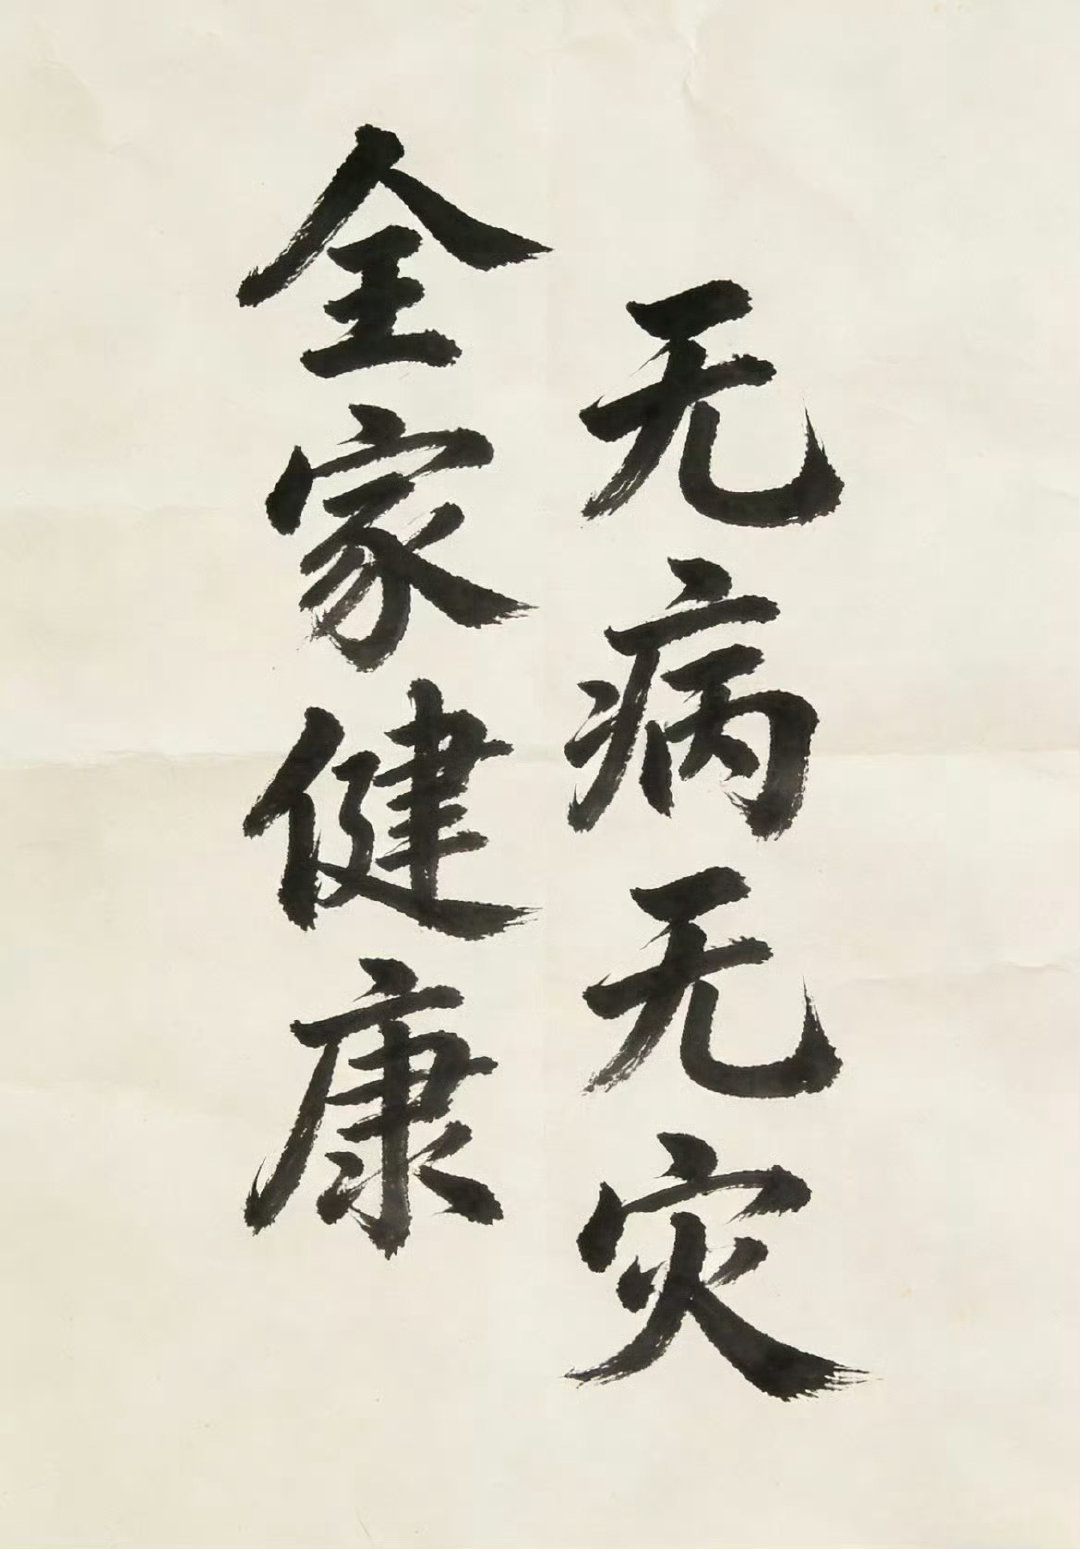 全家健康
无病无灾